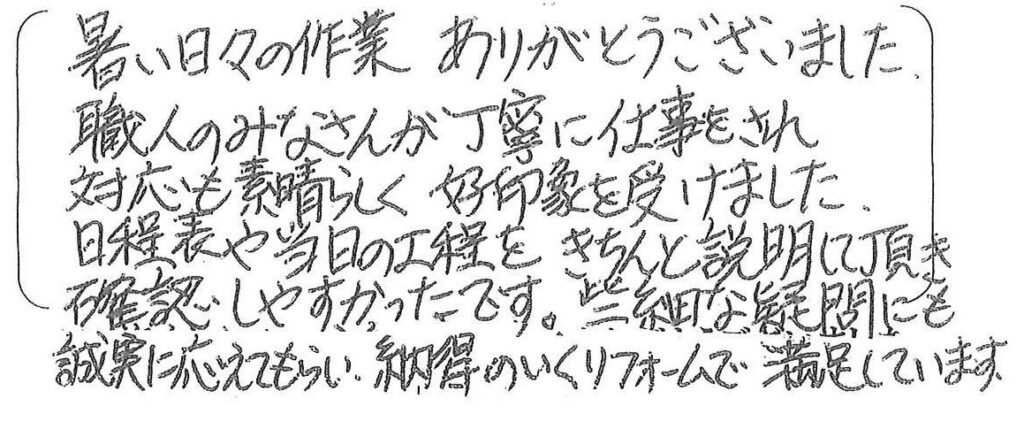 暑い日々の作業 ありがとうございました、
職人のみなさんが丁寧に仕事をされ
対応も素晴らしく 好印象を受けました、
日程表や当日の工程を きちんと説明して頂き
確認しやすかったです。些細な疑問にも
誠実に応えてもらい、納得のいくリフォームで 満足しています